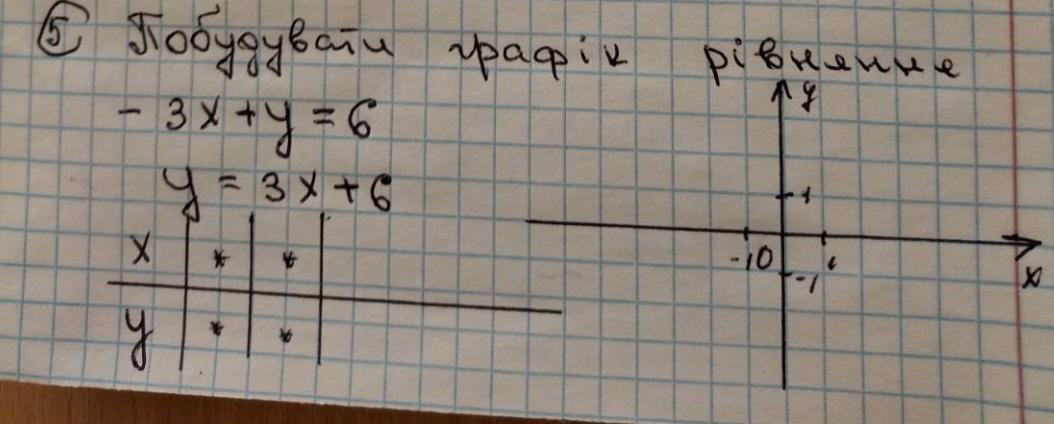 5 Побудувати графік рівняння
- 3x + y = 6
y = 3x + 6
x * *
y * *
y
1
-1 0 1
-1
x